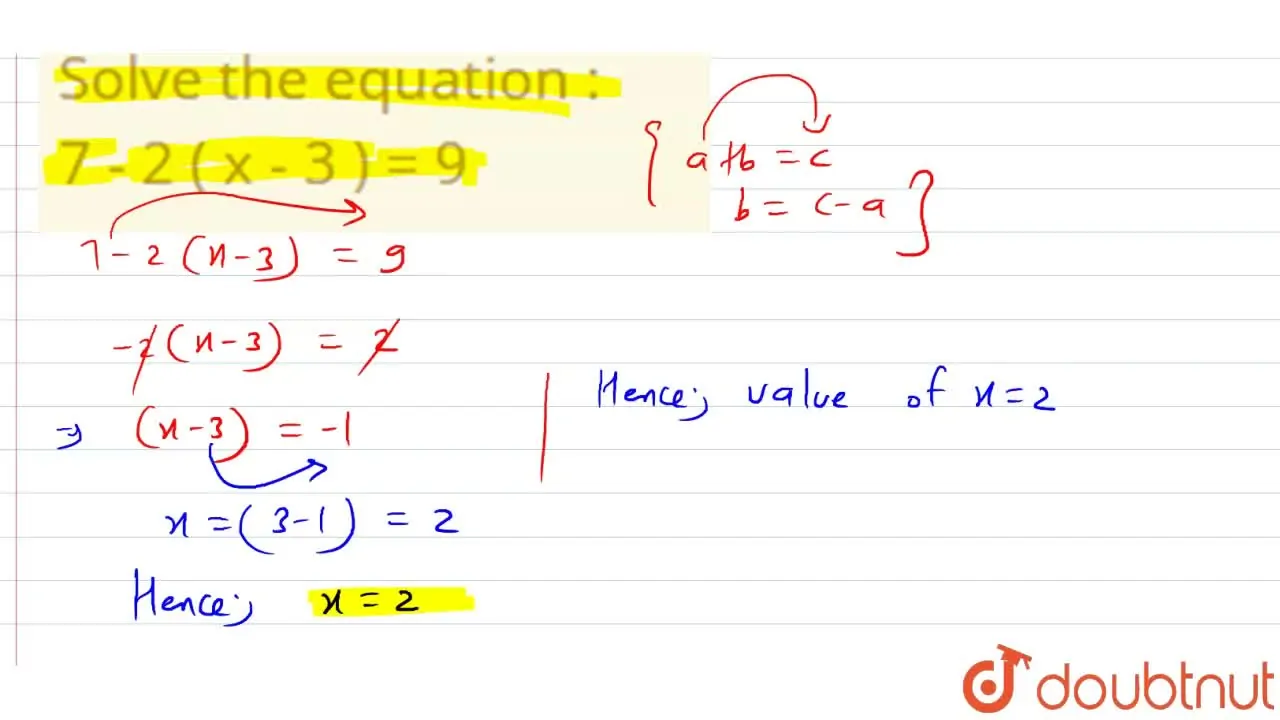 Solve the equation :
7 - 2 ( x - 3 ) = 9
a + b = c
b = c - a
7 - 2 (x - 3) = 9
-2 (x - 3) = 2
⇒ (x - 3) = -1
x = (3 - 1) = 2
Hence; x = 2
Hence; value of x = 2
doubtnut